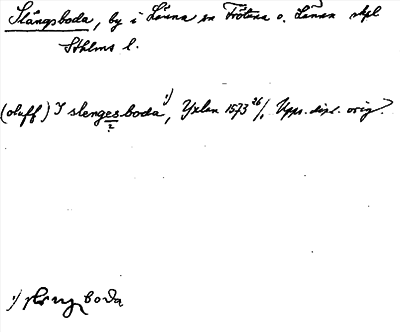 Slängsboda, by i Länna sn Frötuna o. Länna skpl
Sthlms l.
(oluff) I slengesboda ¹), Yxlan 1573 26/1 Upps. dipl. orig.
?
¹) slengzboda